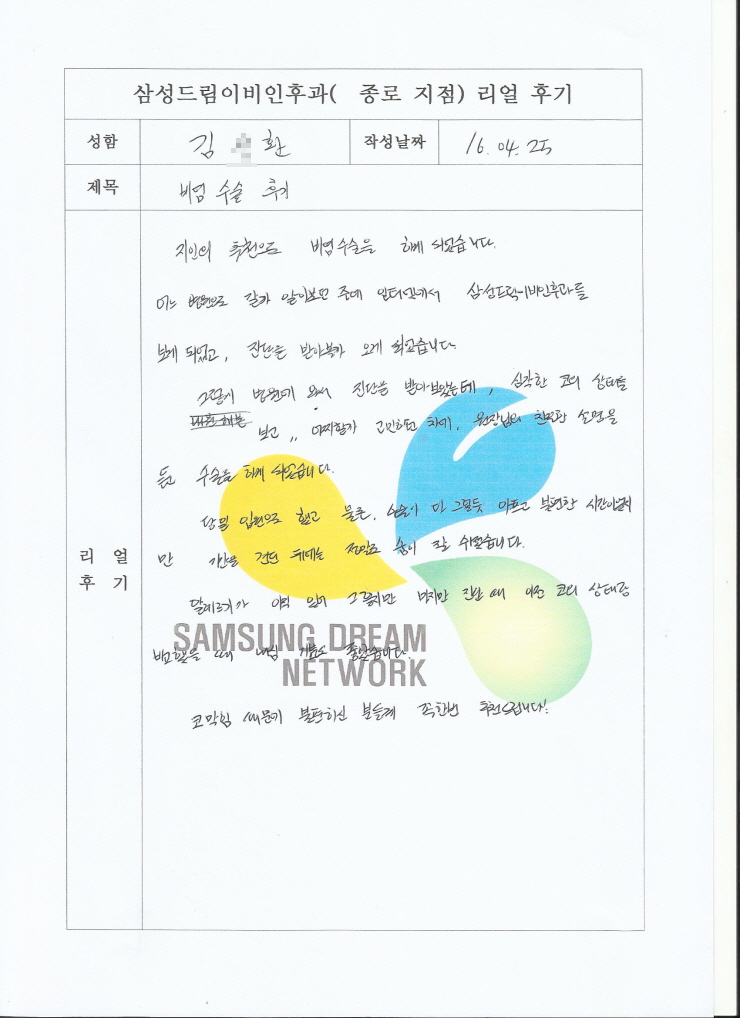 삼성드림이비인후과( 종로 지점) 리얼 후기
성함 김 환 작성날짜 16. 04. 25
제목 비염 수술 후기
리 얼
후 기
지인의 추천으로 비염수술을 하게 되었습니다.
어느 병원으로 갈까 알아보던 중에 인터넷에서 삼성드림이비인후과를
보게 되었고, 진단을 받아보러 오게 되었습니다.
그렇게 병원에 와서 진단을 받아보았는데, 심각한 코의 상태를
보고,, 어찌할까 고민하던 차에, 원장님의 친절한 설명을
듣고 수술을 하게 되었습니다.
당일 입원으로 했고 물론, 수술이 다 그렇듯 아프고 불편한 시간이었지
만 기간을 견딘 뒤에는 정말로 숨이 잘 쉬어졌습니다.
알레르기가 아직 있어 그렇지만 마지막 진단 때 이전 코의 상태랑
비교했을 때 내심 기분이 좋았습니다.
코막힘 때문에 불편하신 분들께 꼭한번 추천드립니다!
SAMSUNG DREAM
NETWORK